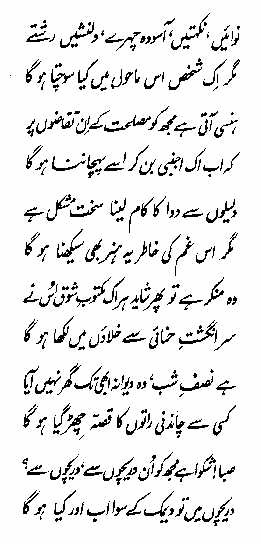 نوائیں، نکہتیں، آسودہ چہرے، دلنشیں رشتے
مگر اک شخص اس ماحول میں کیا سوچتا ہو گا
ہنسی آتی ہے مجھ کو مصلحت کے ان تقاضوں پر
کہ اب اک اجنبی بن کر اسے پہچاننا ہو گا
دلیلوں سے دوا کا کام لینا سخت مشکل ہے
مگر اس غم کی خاطر یہ ہنر بھی سیکھنا ہو گا
وہ منکر ہے تو پھر شاید ہر اک مکتوب شوق اس نے
سر انگشت حنائی سے خلاؤں میں لکھا ہو گا
ہے نصف شب، وہ دیوانہ ابھی تک گھر نہیں آیا
کسی سے چاندنی راتوں کا قصہ چھڑ گیا ہو گا
صبا! شکوا ہے مجھ کو ان دریچوں سے، دریچوں سے؟
دریچوں میں تو دیمک کے سوا اب اور کیا ہو گا